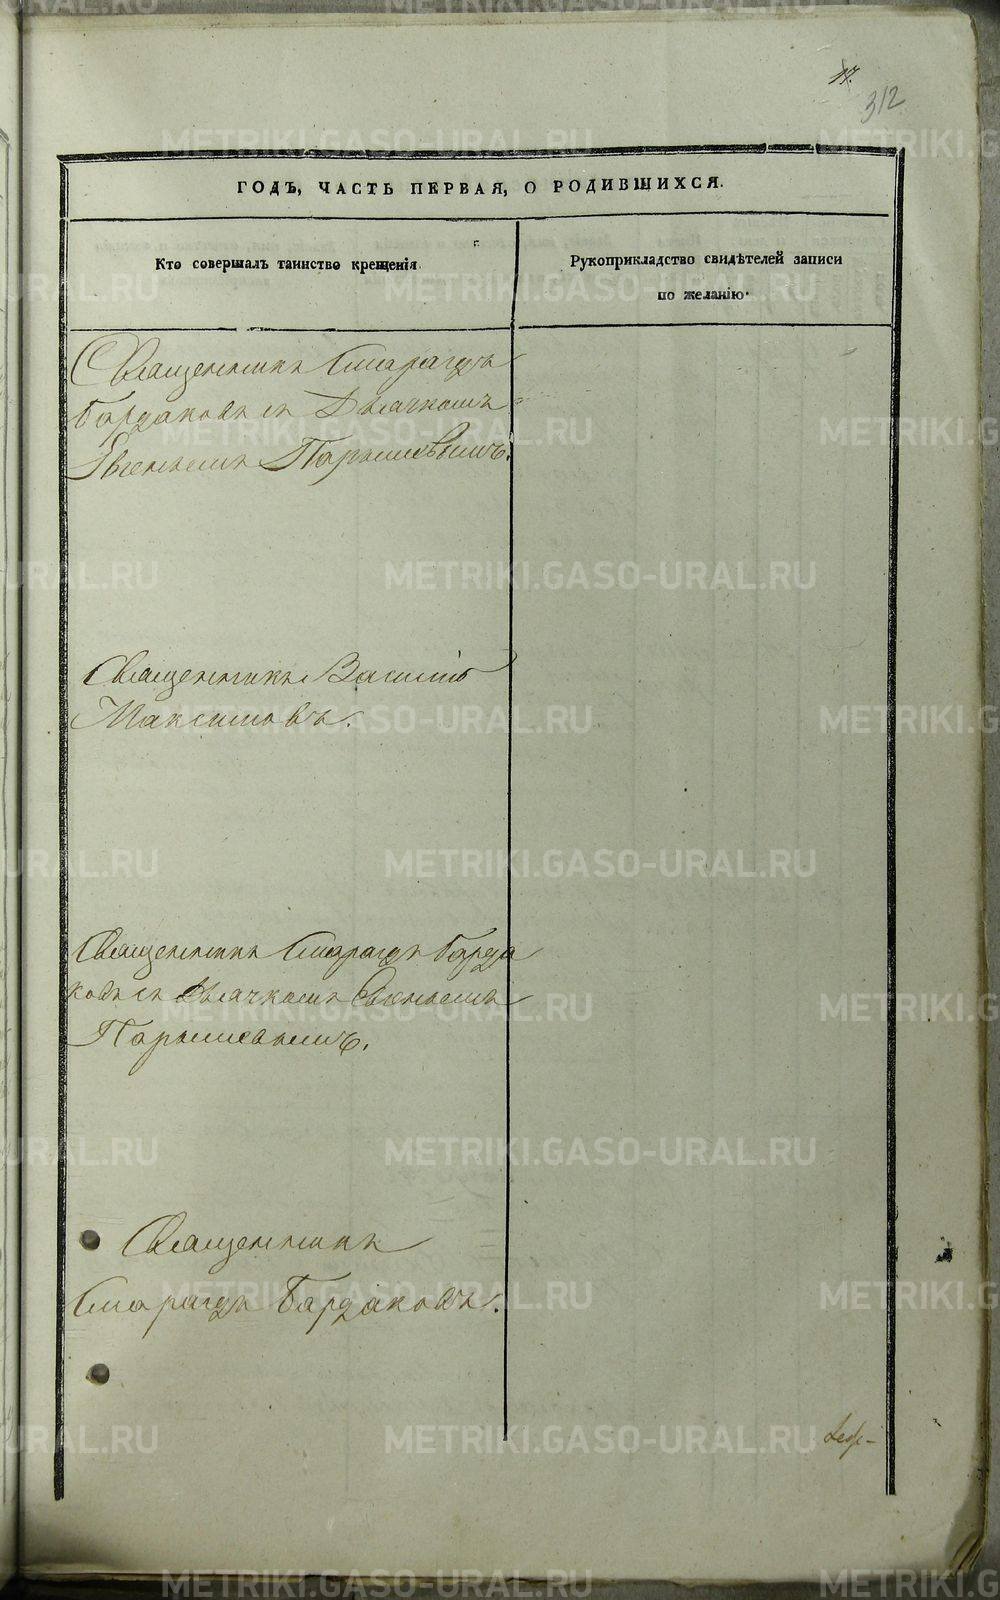 17.
312
ГОДЪ, ЧАСТЬ ПЕРВАЯ, О РОДИВШИХСЯ.
Кто совершалъ таинство крещенія.
Рукоприкладство свидѣтелей записи
по желанію.
Священникъ Смарагдъ
Бардаковъ съ Дьячкомъ
Евгеньемъ Парышевымъ.
Священникъ Василій
Максимовъ.
Священникъ Смарагдъ Барда
ковъ съ Дьячкомъ Евгеньемъ
Парышевымъ.
Священникъ
Смарагдъ Бардаковъ.
METRIKI.GASO-URAL.RU